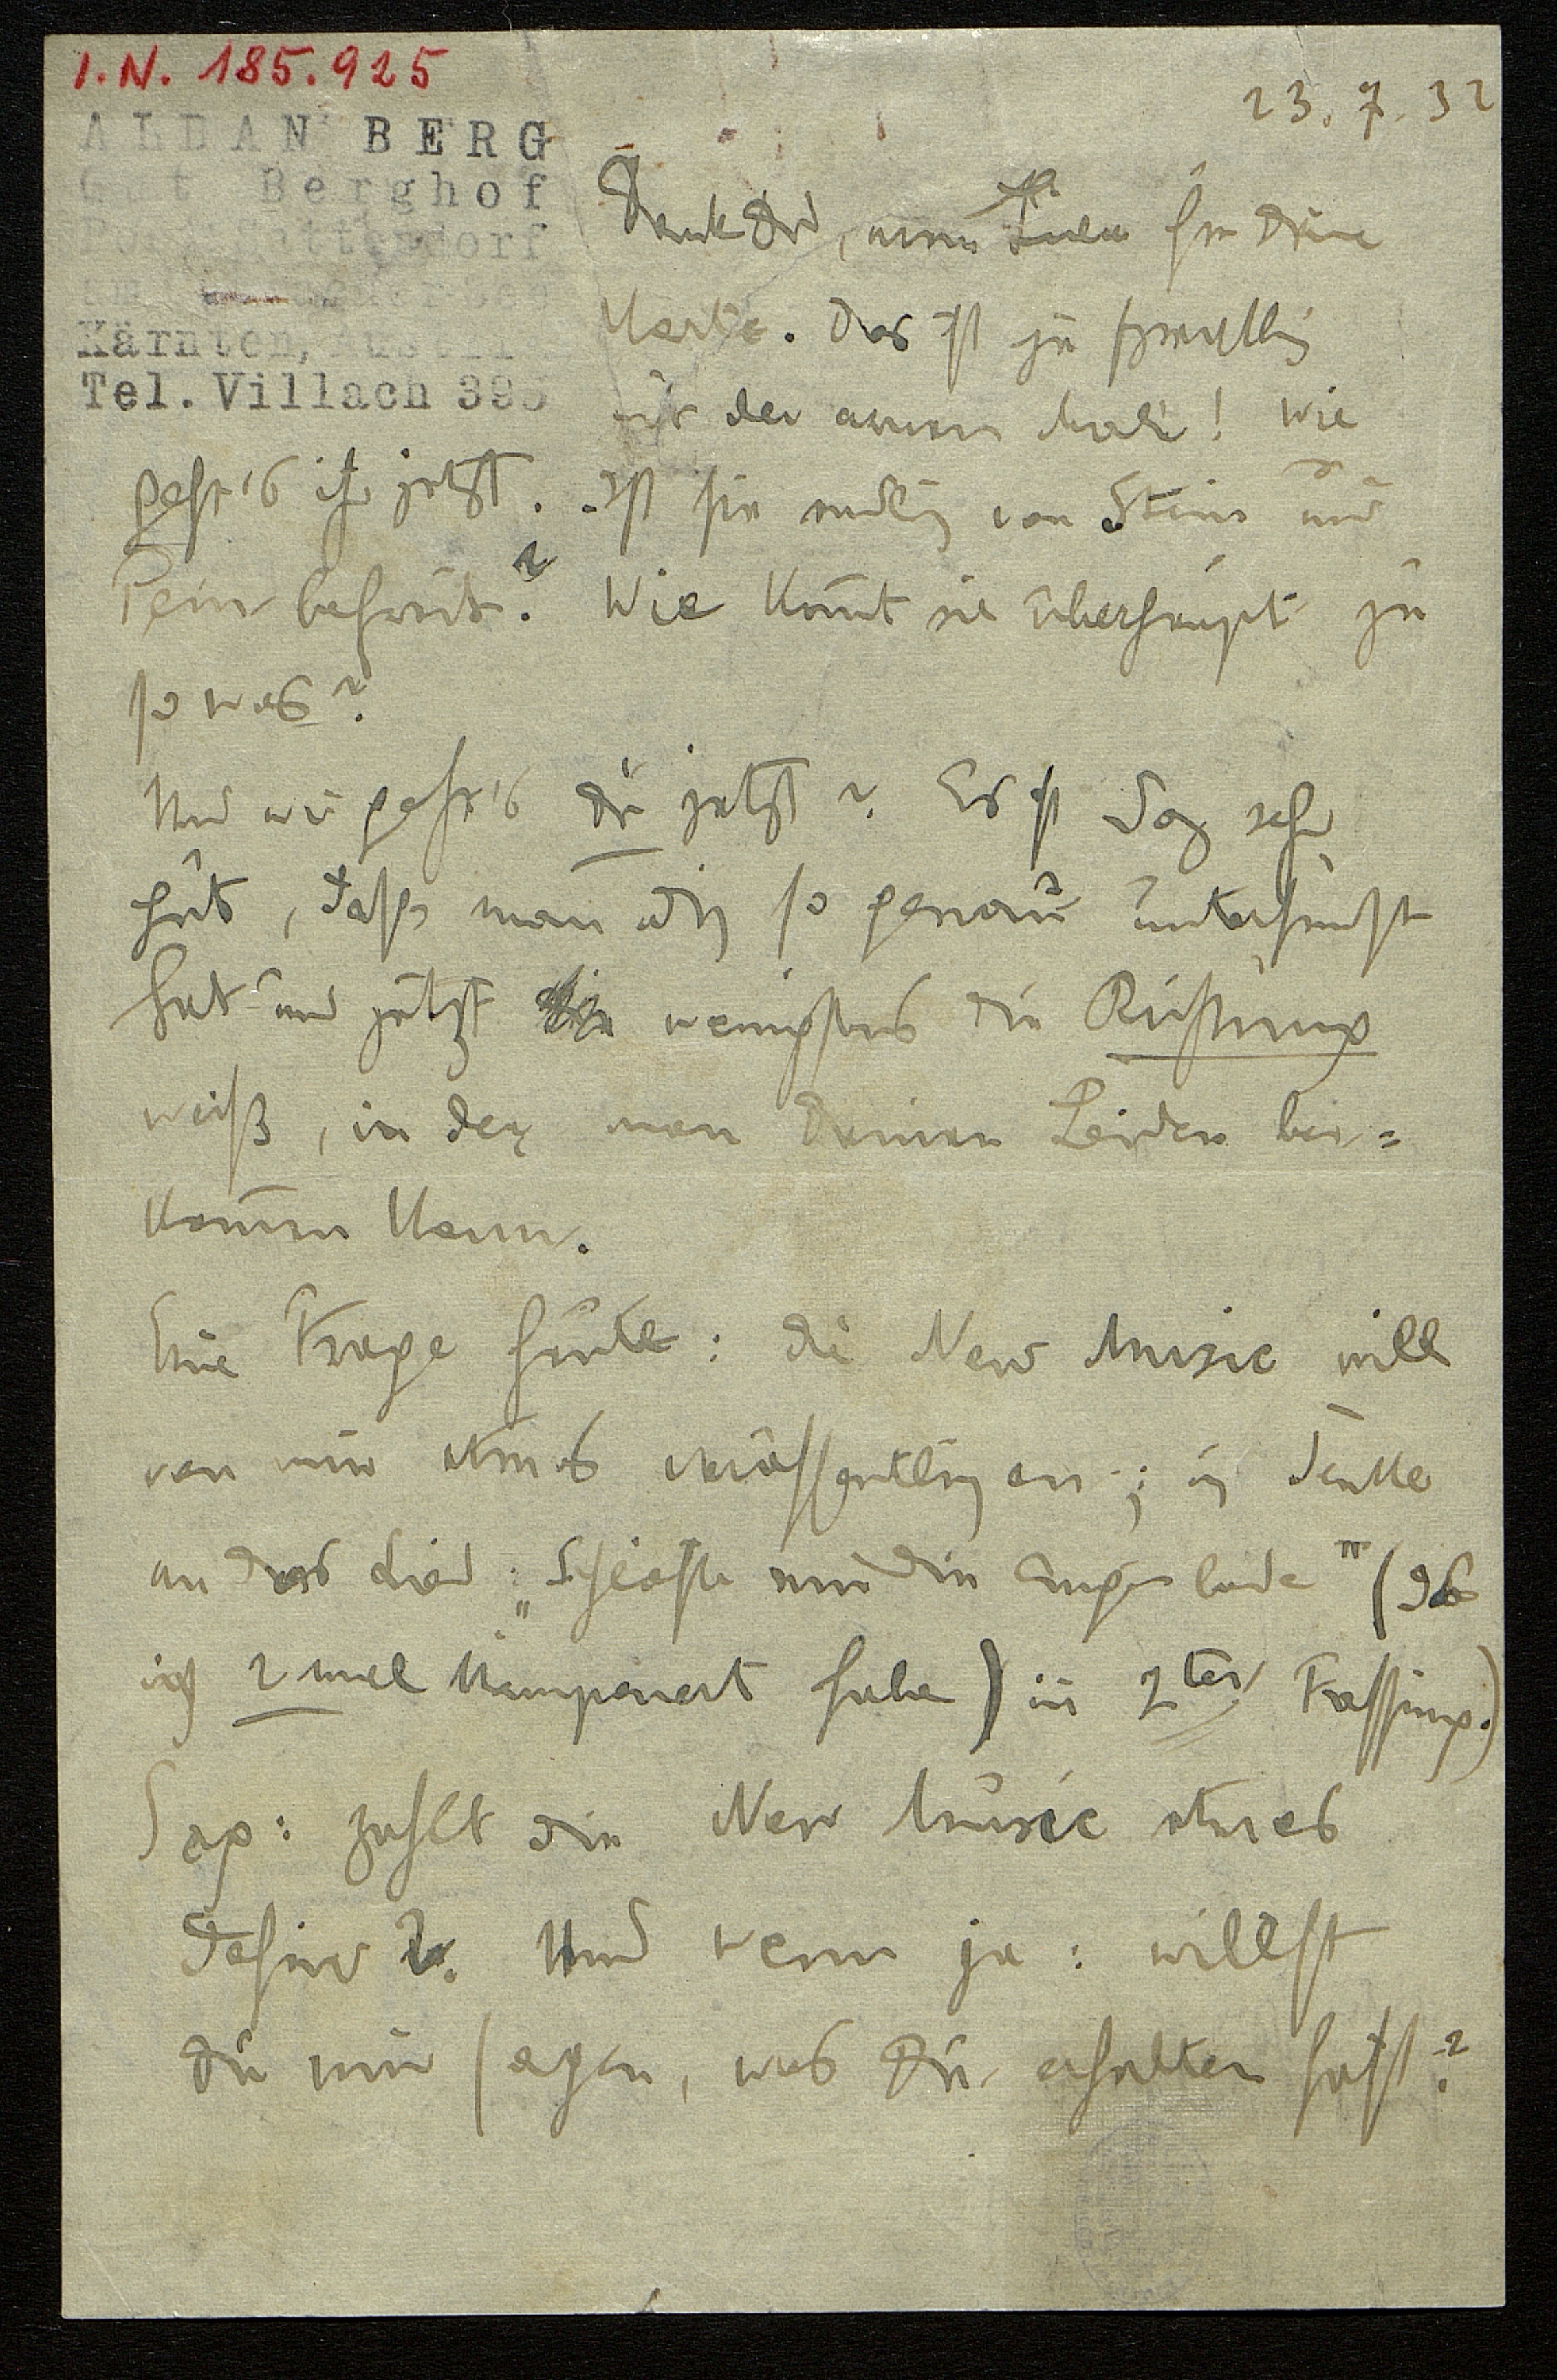 I.N. 185.925
23.7.32
ALBAN BERG
Gut Berghof
Post Sattendorf
am Ossiacher See
Kärnten, Austria
Tel. Villach 395
Dank Dir, mein Lieber für Deine
Karte. Das ist ja schrecklich
mit der armen Mali! Wie
geht's ihr jetzt. Ist sie endlich von Stein und
Pein befreit? Wie kom̄t sie überhaupt zu
so was?
Und wie geht's dir jetzt? Es ist doch sehr
gut, dass man dich so genau untersucht
hat und jetzt wenigstens die Richtung
weiß, in der man Deinen Leiden bei=
kom̄en kann.
Eine Frage heute: die New Music will
von mir etwas veröffentlichen; ich denke
an das Lied: „Schließe mir die Augen beide" (das
ich 2 mal komponiert habe) in 2ter Fassung.)
Sag: zahlt die New Music etwas
dafür? Und wenn ja: willst
Du mir sagen, was Du erhalten hast?